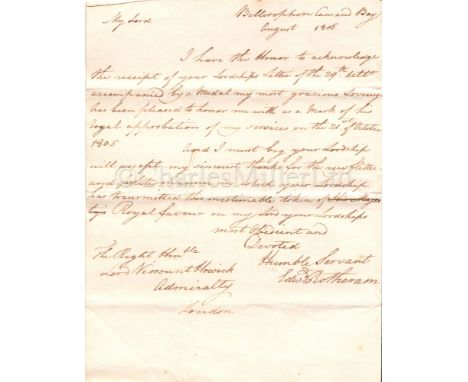 Bellerophon Cawsand Bay
My Lord
August 1806
I have the Honor to acknowledge
the receipt of your Lordships Letter of the 29th Ultº
accompanied by a Medal my most gracious Sovereign
has been pleased to honor me with as a Mark of his
royal approbation of my services on the 21st of October
1805
And I must beg your Lordship
will accept my sincerest thanks for the very flatter-
-ing polite manner in which your Lordship
has transmitted this inestimable token of His Majes
tys Royal favour on my Lord your Lordships
most Obedient and
Devoted
The Right Honble
Humble Servant
Lord Viscount Howick
Edwd Rotheram
Admiralty
London
CharlesMillerLtd